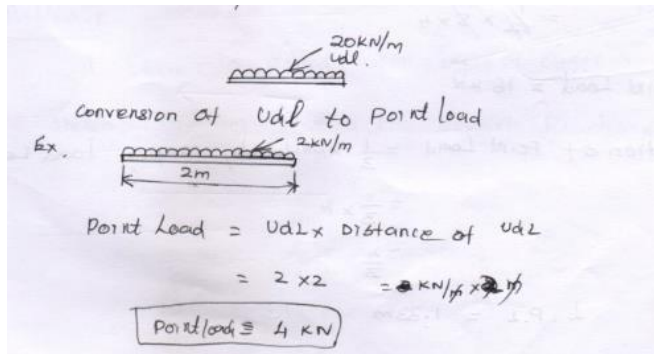 20KN/m
Udl.
Conversion of Udl to Point load
Ex.
2KN/m
2m
Point Load = UdL x Distance of UdL
= 2 x 2 = KN/m x m
Point load = 4 KN